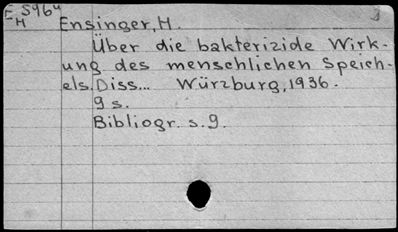 E 5964
H
Ensinger, H.
Über die bakterizide Wirk-
ung des menschlichen Speich-
els. Diss... Würzburg, 1936.
9 s.
Bibliogr. s. 9.